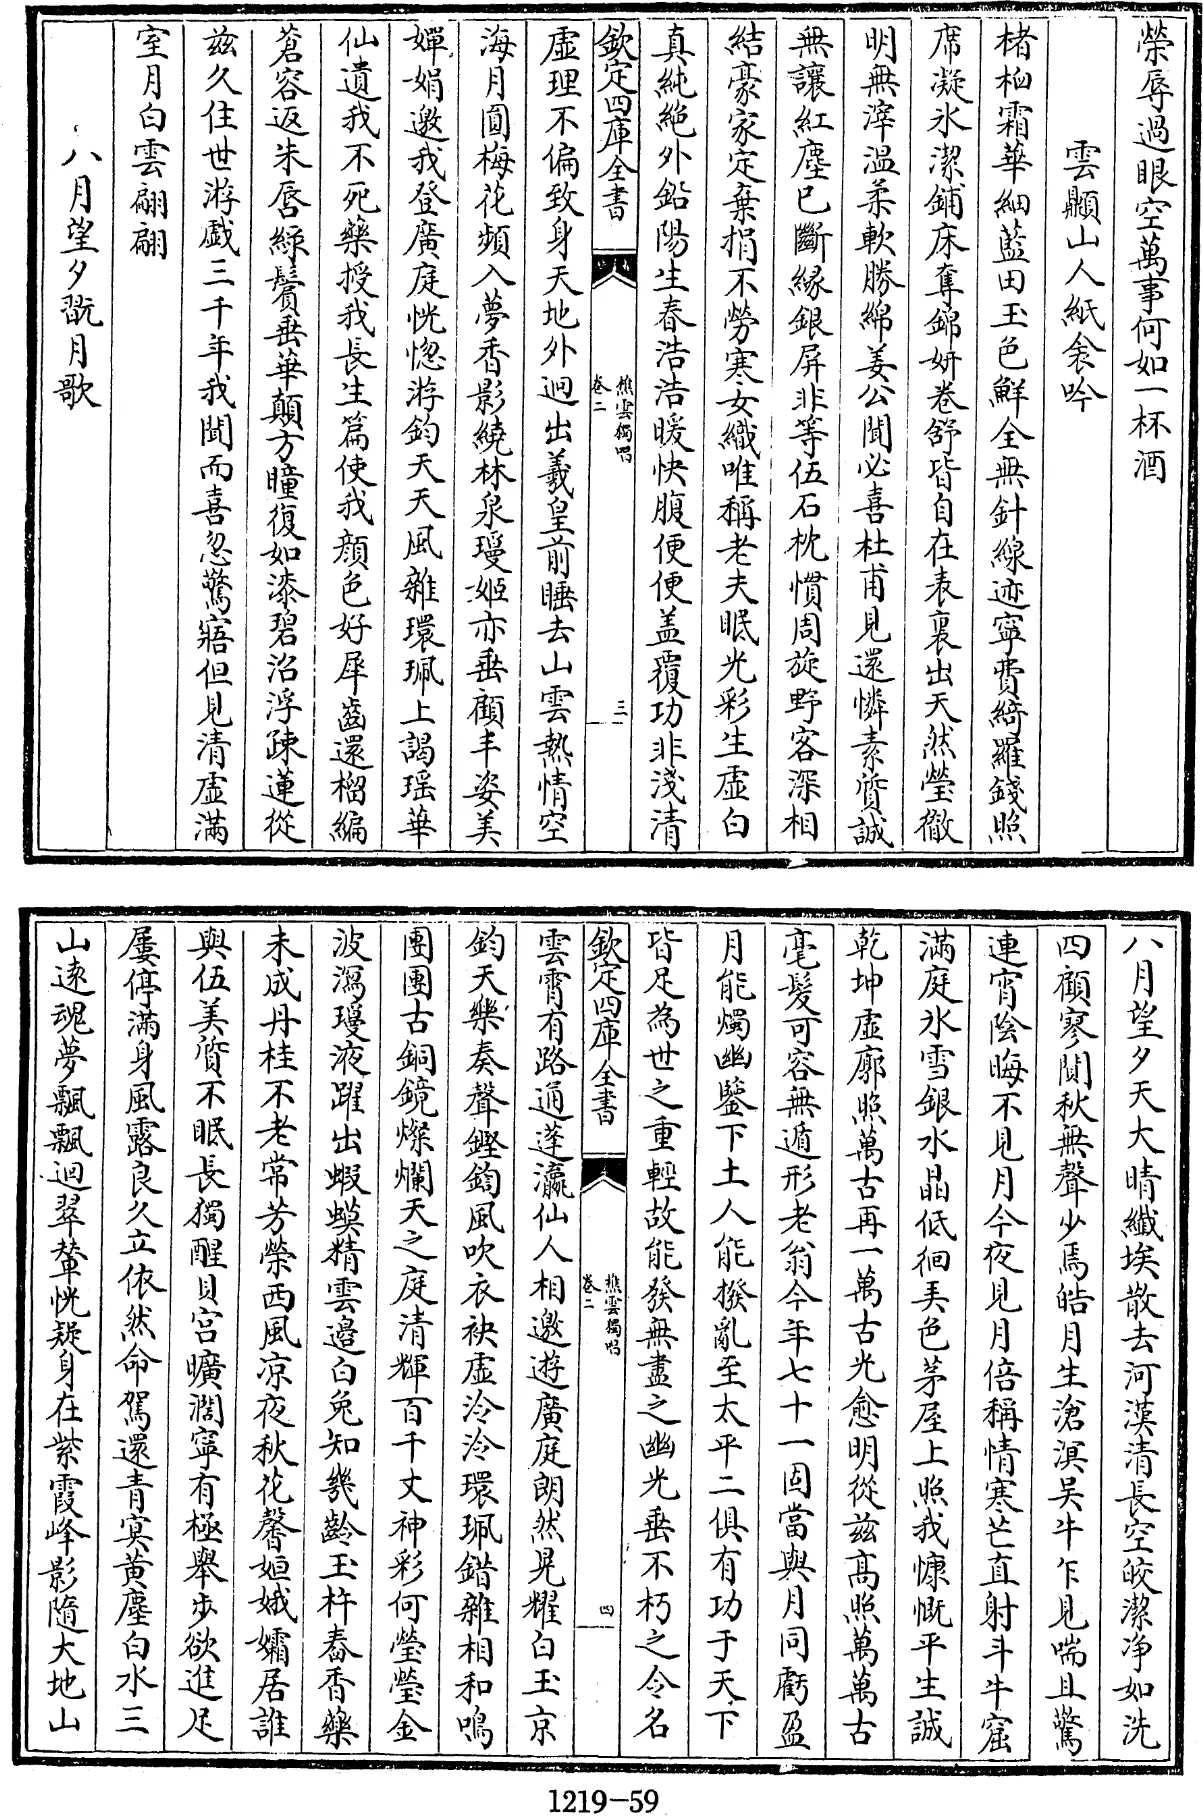 榮辱過眼空萬事何如一杯酒
雲顯山人紙衾吟
楮桕霜華細藍田玉色鮮全無針線迹寜費綺羅錢照
席凝氷潔鋪床奪錦妍卷舒皆自在表裏出天然瑩徹
明無滓温柔軟勝綿姜公聞必喜杜甫見還憐素質誠
無讓紅塵已斷緣銀屏非等伍石枕慣周旋野客深相
結豪家定棄捐不勞寒女織唯稱老夫眠光彩生虛白
真純絶外鉛陽生春浩浩暖快腹便便盖覆功非淺清
欽定四庫全書
樵雲獨唱
卷二
三
虛理不偏致身天地外迥出羲皇前睡去山雲熱情空
海月圓梅花頻入夢香影繞林泉瓊姬亦垂顧丰姿美
嬋娟邀我登廣庭恍惚游鈞天天風雜環珮上謁瑶華
仙遺我不死藥授我長生篇使我顔色好犀齒還榴編
蒼容返朱唇綠鬢垂華顛方瞳復如漆碧沼浮疎蓮從
兹久住世游戲三千年我聞而喜忽驚寤但見清虛滿
室月白雲翩翩
八月望夕翫月歌
八月望夕天大晴纖埃散去河漢清長空皎潔净如洗
四顧寥閴秋無聲少焉皓月生滄溟吴牛乍見喘且驚
連宵陰晦不見月今夜見月倍稱情寒芒直射斗牛窟
滿庭氷雪銀水晶低徊美色茅屋上照我慷慨平生誠
乾坤虛廓照萬古再一萬古光愈明從兹高照萬萬古
毫髮可容無遁形老翁今年七十一固當與月同虧盈
月能燭幽鑒下土人能撥亂至太平二俱有功于天下
皆足為世之重輕故能發無盡之幽光垂不朽之令名
欽定四庫全書
樵雲獨唱
卷二
四
雲霄有路通蓬瀛仙人相邀遊廣庭朗然晃耀白玉京
鈞天樂奏聲鏗鍧風吹衣袂虛泠泠環珮錯雜相和鳴
團團古銅鏡燦爛天之庭清輝百千丈神彩何瑩瑩金
波瀉瓊液躍出蝦蟆精雲邊白兔知幾齡玉杵舂香藥
未成丹桂不老常芳榮西風凉夜秋花馨姮娥孀居誰
與伍美質不眠長獨醒貝宫曠濶寧有極舉步欲進足
屢停滿身風露良久立依然命駕還青寘黄塵白水三
山遠魂夢飄飄迴翠輦恍疑身在紫霞峰影隨大地山
1219-59